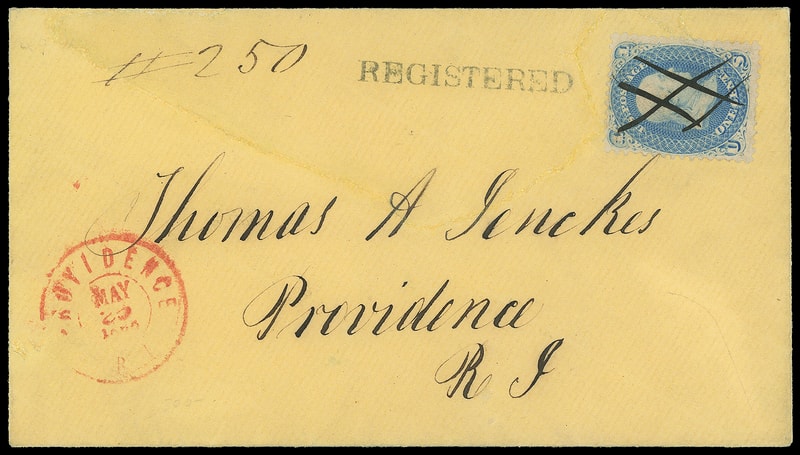 #250
REGISTERED
Thomas A Jenckes
Providence
R I
PROVIDENCE
MAY
R. I.